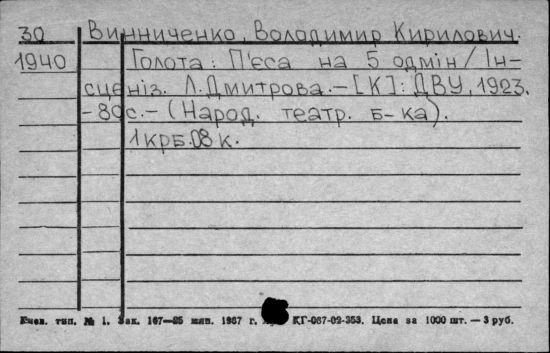 30 Винниченко, Володимир Кирилович.
1940 Голота: П'єса на 5 одмін / Ін-
сценіз. Л. Дмитрова. – [К]: ДВУ, 1923.
– 80с. – (Народ. театр. б-ка).
1крб. 08 к.
тип. № 1. Зак. 167—25 млн. 1967 г. КГ-067-02-353. Цена за 1000 шт. — 3 руб.